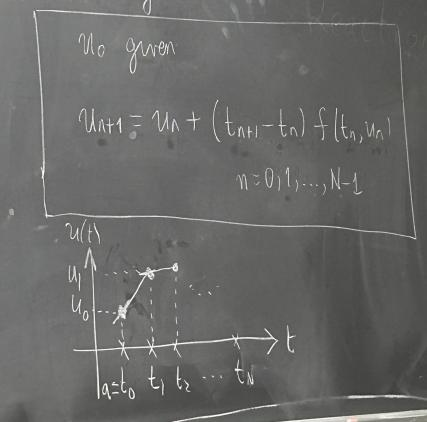 u₀ given
uₙ₊₁ = uₙ + (tₙ₊₁ - tₙ) f(tₙ, uₙ)
n = 0, 1, ..., N-1
u(t)
u₁
u₀
t
a = t₀ t₁ t₂ ... t_N